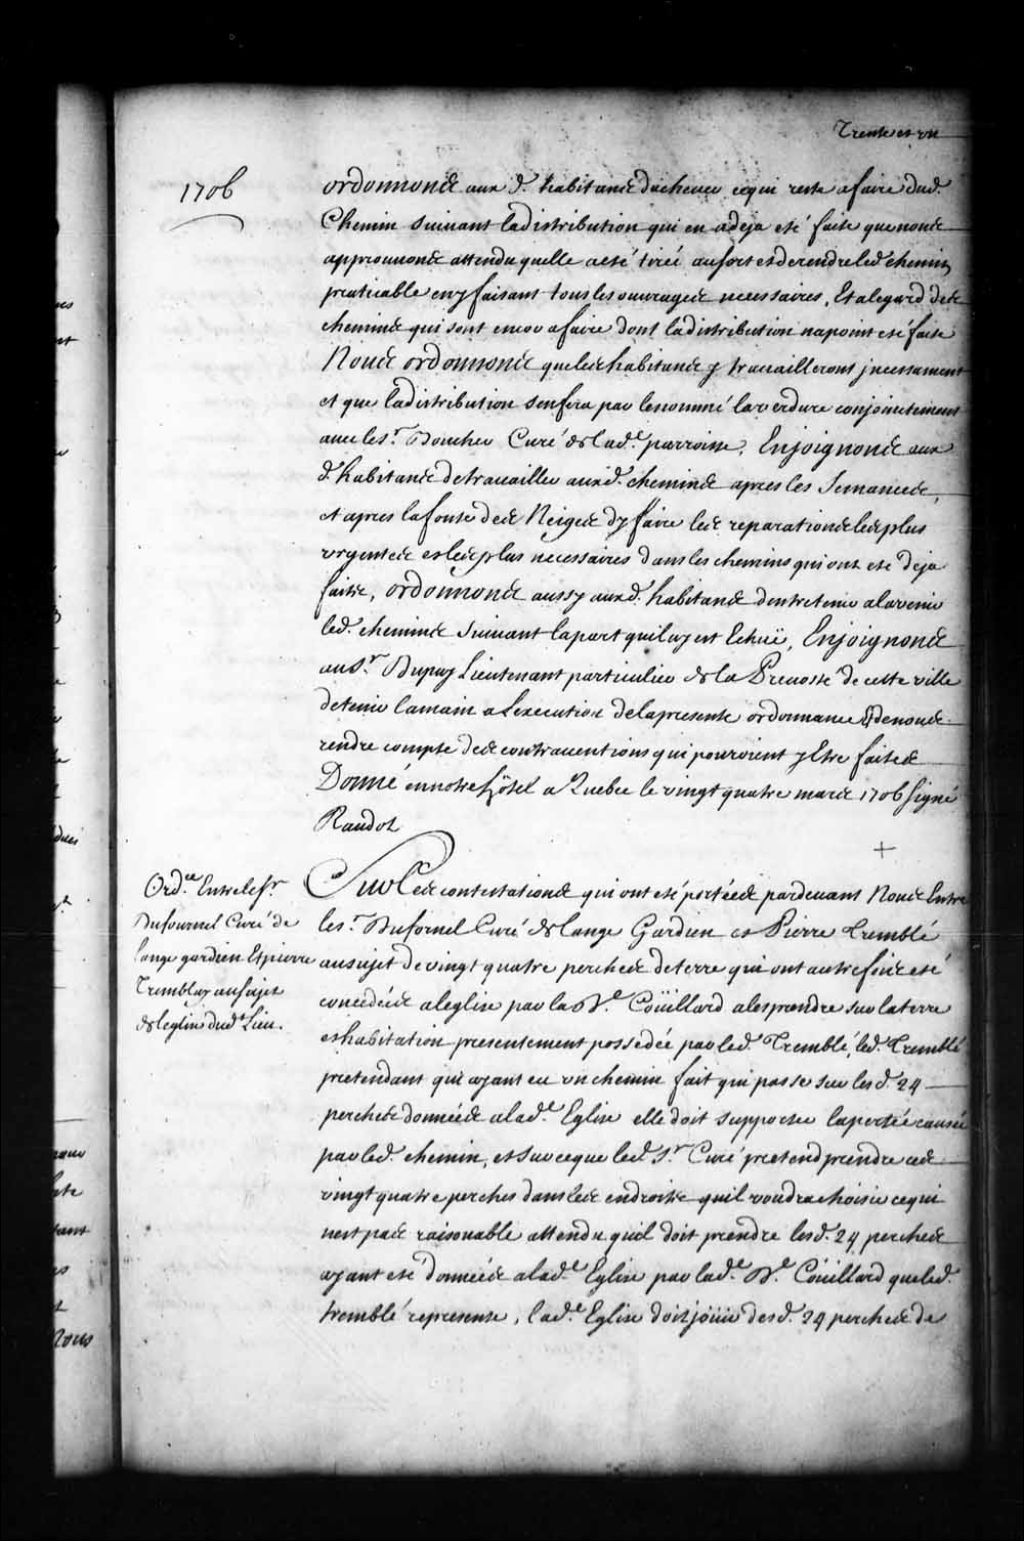 Trente et un
1706
ordonnons aux d. habitans dachever cequi reste afaire dud.
Chemin suivant ladistribution qui en adeja eté faite quenous
approuvons attendu quelle aesté tirée ausort et derendre led chemin
praticable en y faisant tous les ouvrages necessaires, Et alegard des
chemins qui sont encor afaire dont ladistribution napoint eté faite
Nous ordonnons que lesd habitans y travailleront jncessament
et que ladistribution senfera par lenommé laverdure conjointement
avec les.r Boucher Curé de lad.e parroisse, Enjoignons aux
d. habitans detravailler auxd. chemins apres les Semances,
et apres lafonte des Neiges dy faire les reparations les plus
urgentes et les plus necessaires dans les chemins qui ont eté deja
faits, ordonnons aussy auxd. habitans dentretenir alavenir
led. chemins suivant lapart quiluy est Echuë, Enjoignons
au S.r Dupuy Lieutenant particulier de la Prevosté de cette ville
detenir lamain alexecution delapresente ordonnance & denous
rendre compte des contraventions qui pouroient y Etre faites
Donné ennotre hôtel a Quebec le vingt quatre mars 1706 signé
Raudot
+
Ord.ce Entre le sr.
Dufournel Curé de
lange gardien Et pierre
Tremblay au sujet
de leglise dud.t Lieu.
Sur les contestations qui ont eté portées pardevant Nous Entre
les.r Dufornel Curé de lange Gardien et Pierre Tremblé
ausujet de vingt quatre perches deterre qui ont autrefois eté
concedées aleglise par la D.e Coüillard ales prendre sur laterre
et habitation presentement possedée par led. Tremblé, led. Tremblé
pretendant qu'ayant eu un chemin fait qui passe sur les d. 24
perches données alad.e Eglise elle doit supporter laperte causée
par led. chemin, et sur ceque led. S.r Curé pretend prendre ces
vingt quatre perches dans les endroits quil voudra choisir cequi
nest pas raisonable attendu quil doit prendre lesd. 24 perches
ayant eté données alad.e Eglise par lad.e D.e Coüillard queled.
tremblé represente, lad.e Eglise doit joüir des d. 24 perches de